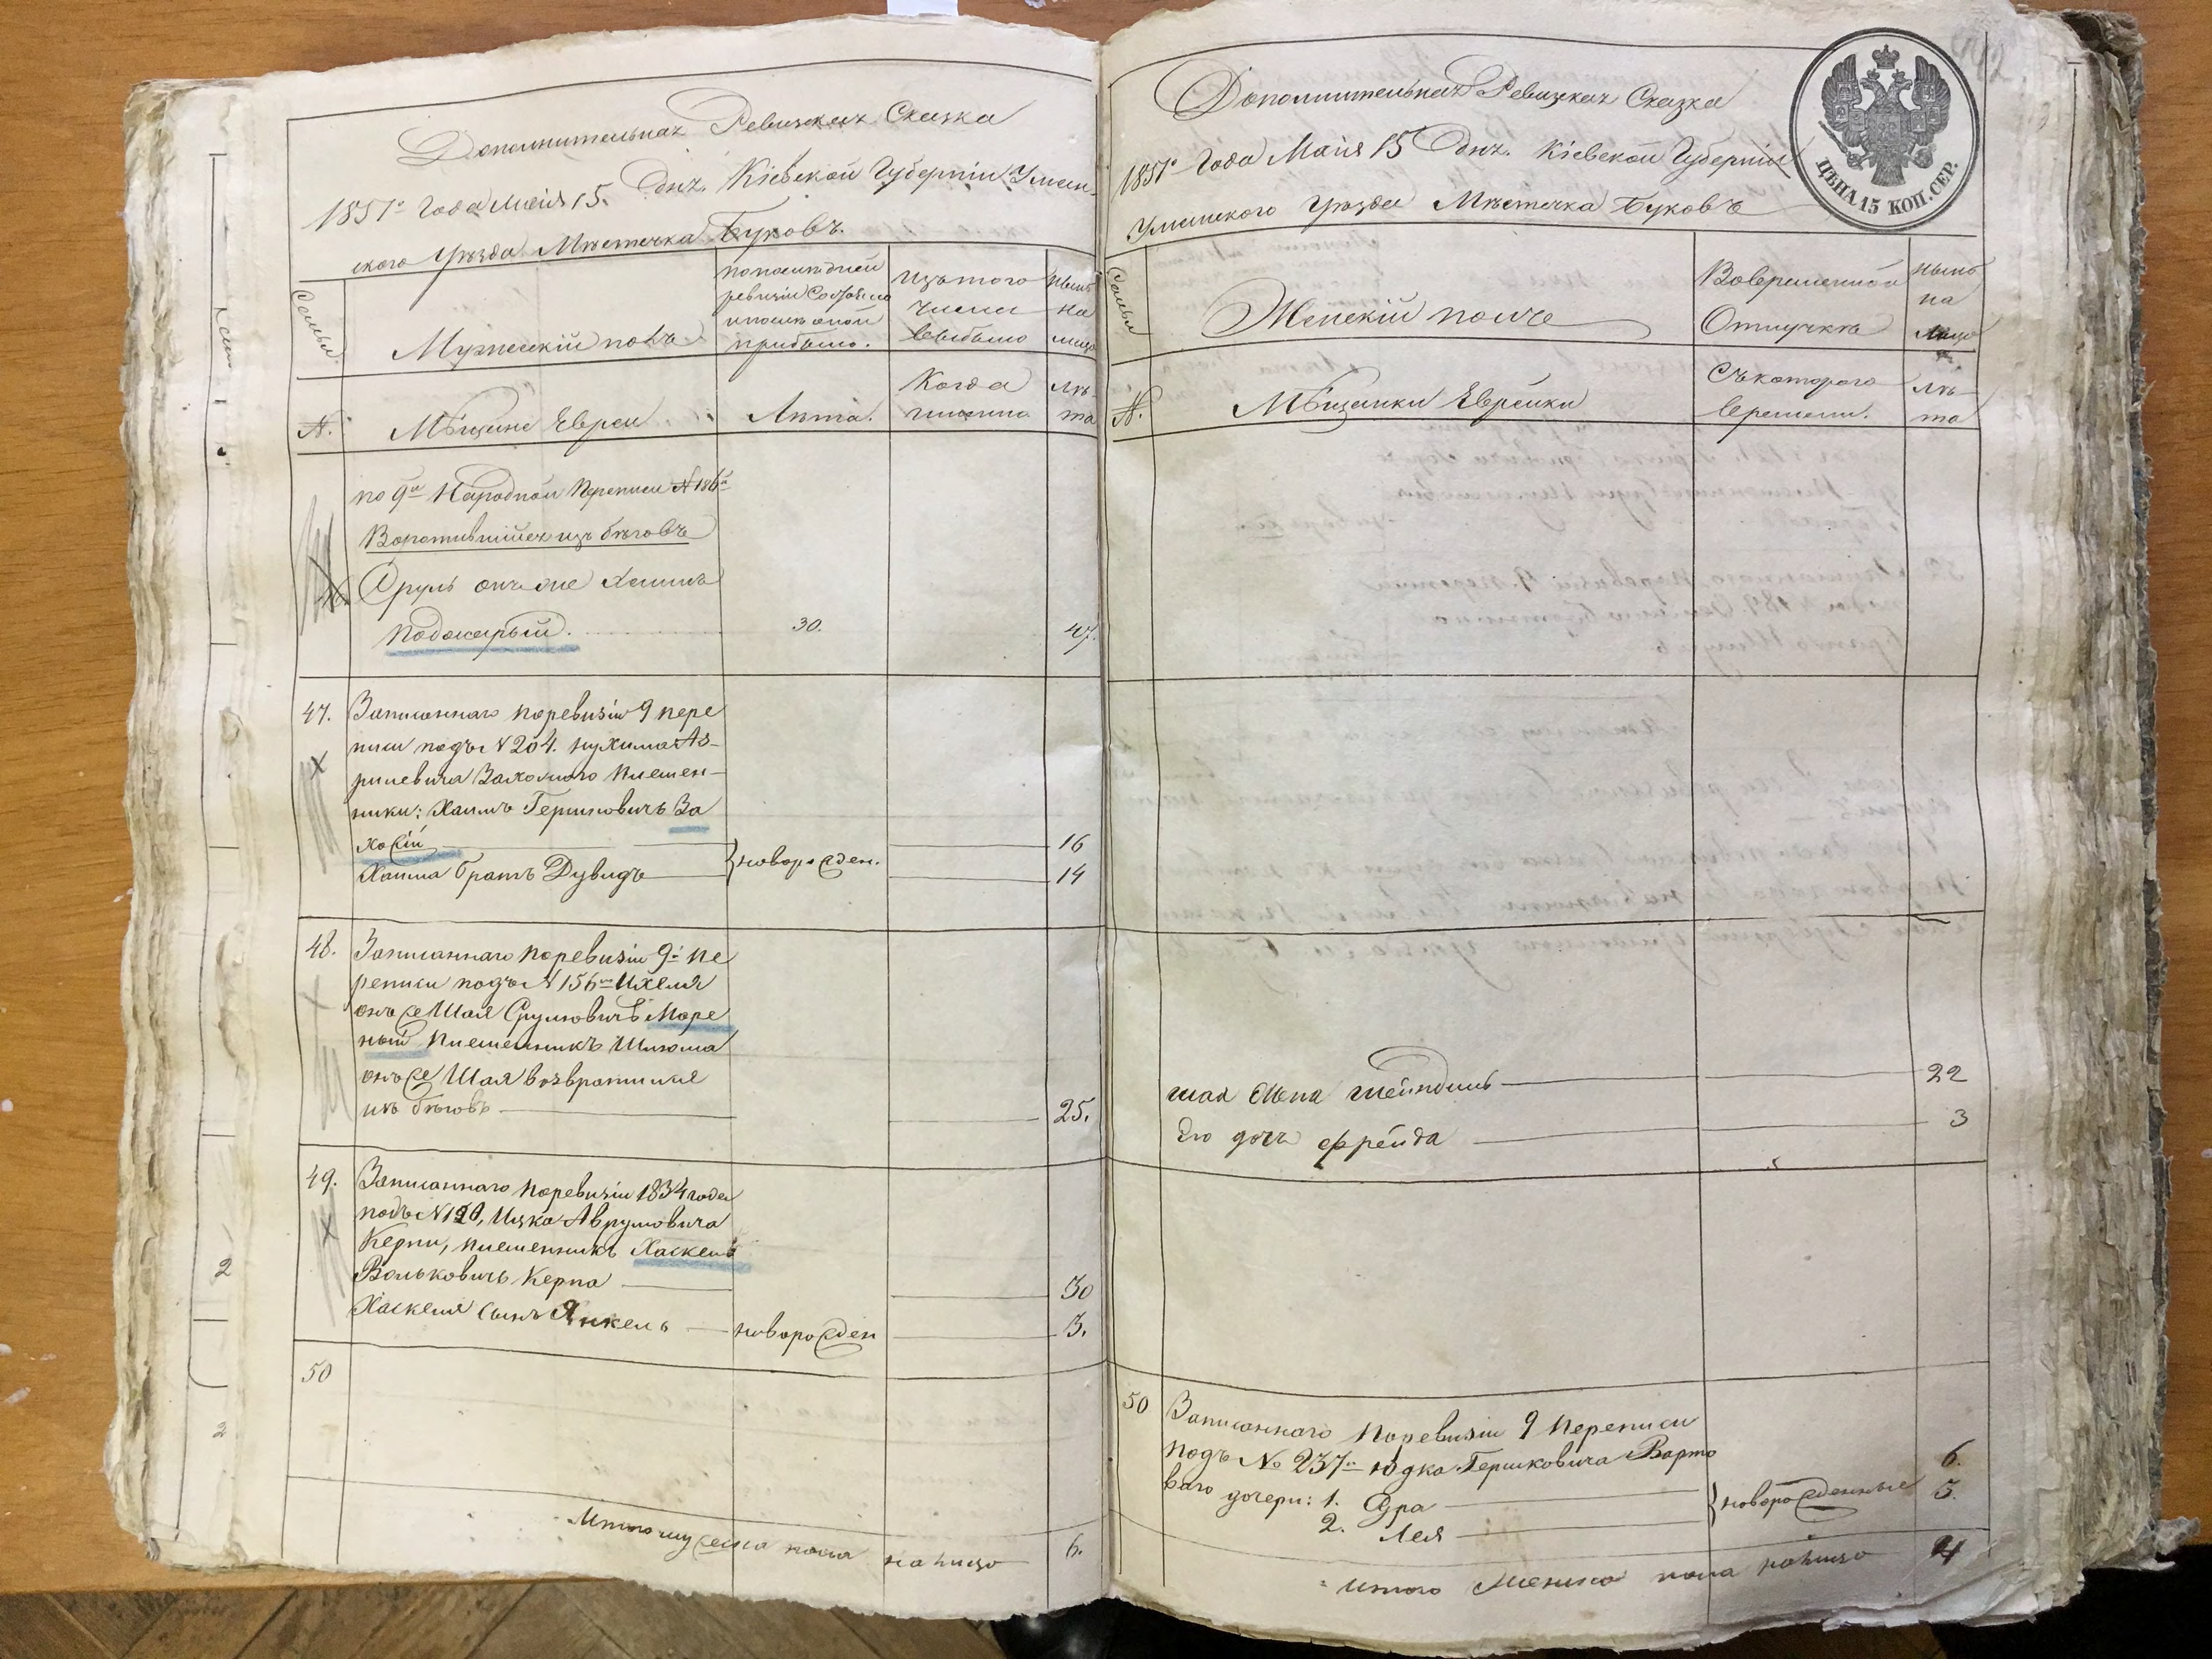 Дополнительная Ревизская Сказка
1851го Года Маія 15 Дня. Кіевской Губерніи Уман-
ского Уѣзда Мѣстечка Буковъ.
Семьи
Мужескій полъ
по последней
ревизіи Состояло
и после оной
прибыло.
изъ того
числа
выбыло
ныне
на
лицо
№.
Мѣщане Евреи
Лѣта.
Когда
именно
лѣ-
та
по 9й Народной Переписи № 186й
Воротившійся изъ бѣговъ
46
Сруль онъ же Хаимъ
Подожарый.
30.
47.
47.
Записаннаго по ревизіи 9 пере
писи подъ № 204. Нухима Аз-
рилевича Захолого племен-
ники: Хаимъ Гершковичъ За
холій
16
Хаима братъ Дувидъ
новорожден.
14
48.
Записаннаго по ревизіи 9й пе
реписи подъ № 156м Ихеля
онъ же Шая Сруловичъ Море
ный племенникъ Шлюма
онъ же Шая возвратился
изъ бѣговъ
25.
49.
Записаннаго по ревизіи 1834 года
подъ № 120, Ицка Аврумовича
Керпи, племенникъ Хаскель
Вольковичъ Керпа
30
Хаскеля сынъ Янкель
новорожден
3.
50
Итого мужеска пола на лицо
6.
2
2
Дополнительная Ревизская Сказка
1851го Года Маія 15 Дня. Кіевской Губерніи
Уманского Уѣзда Мѣстечка Буковъ
ЦѢНА 15 КОП. СЕР.
Семьи
Женскій полъ
Во временной
Отлучкѣ
ныне
на
лицо
№.
Мѣщанки Еврейки
Съ котораго
времени.
лѣ-
та
Шая жена Шейндиль
22
Его дочь Фрейда
3
50
Записаннаго По ревизіи 9 Переписи
Подъ № 237м Юдка Гершковича Варто
ваго дочери: 1. Сура
6.
2. Лея
новорожденные
5.
Итого Женска пола на лицо
4